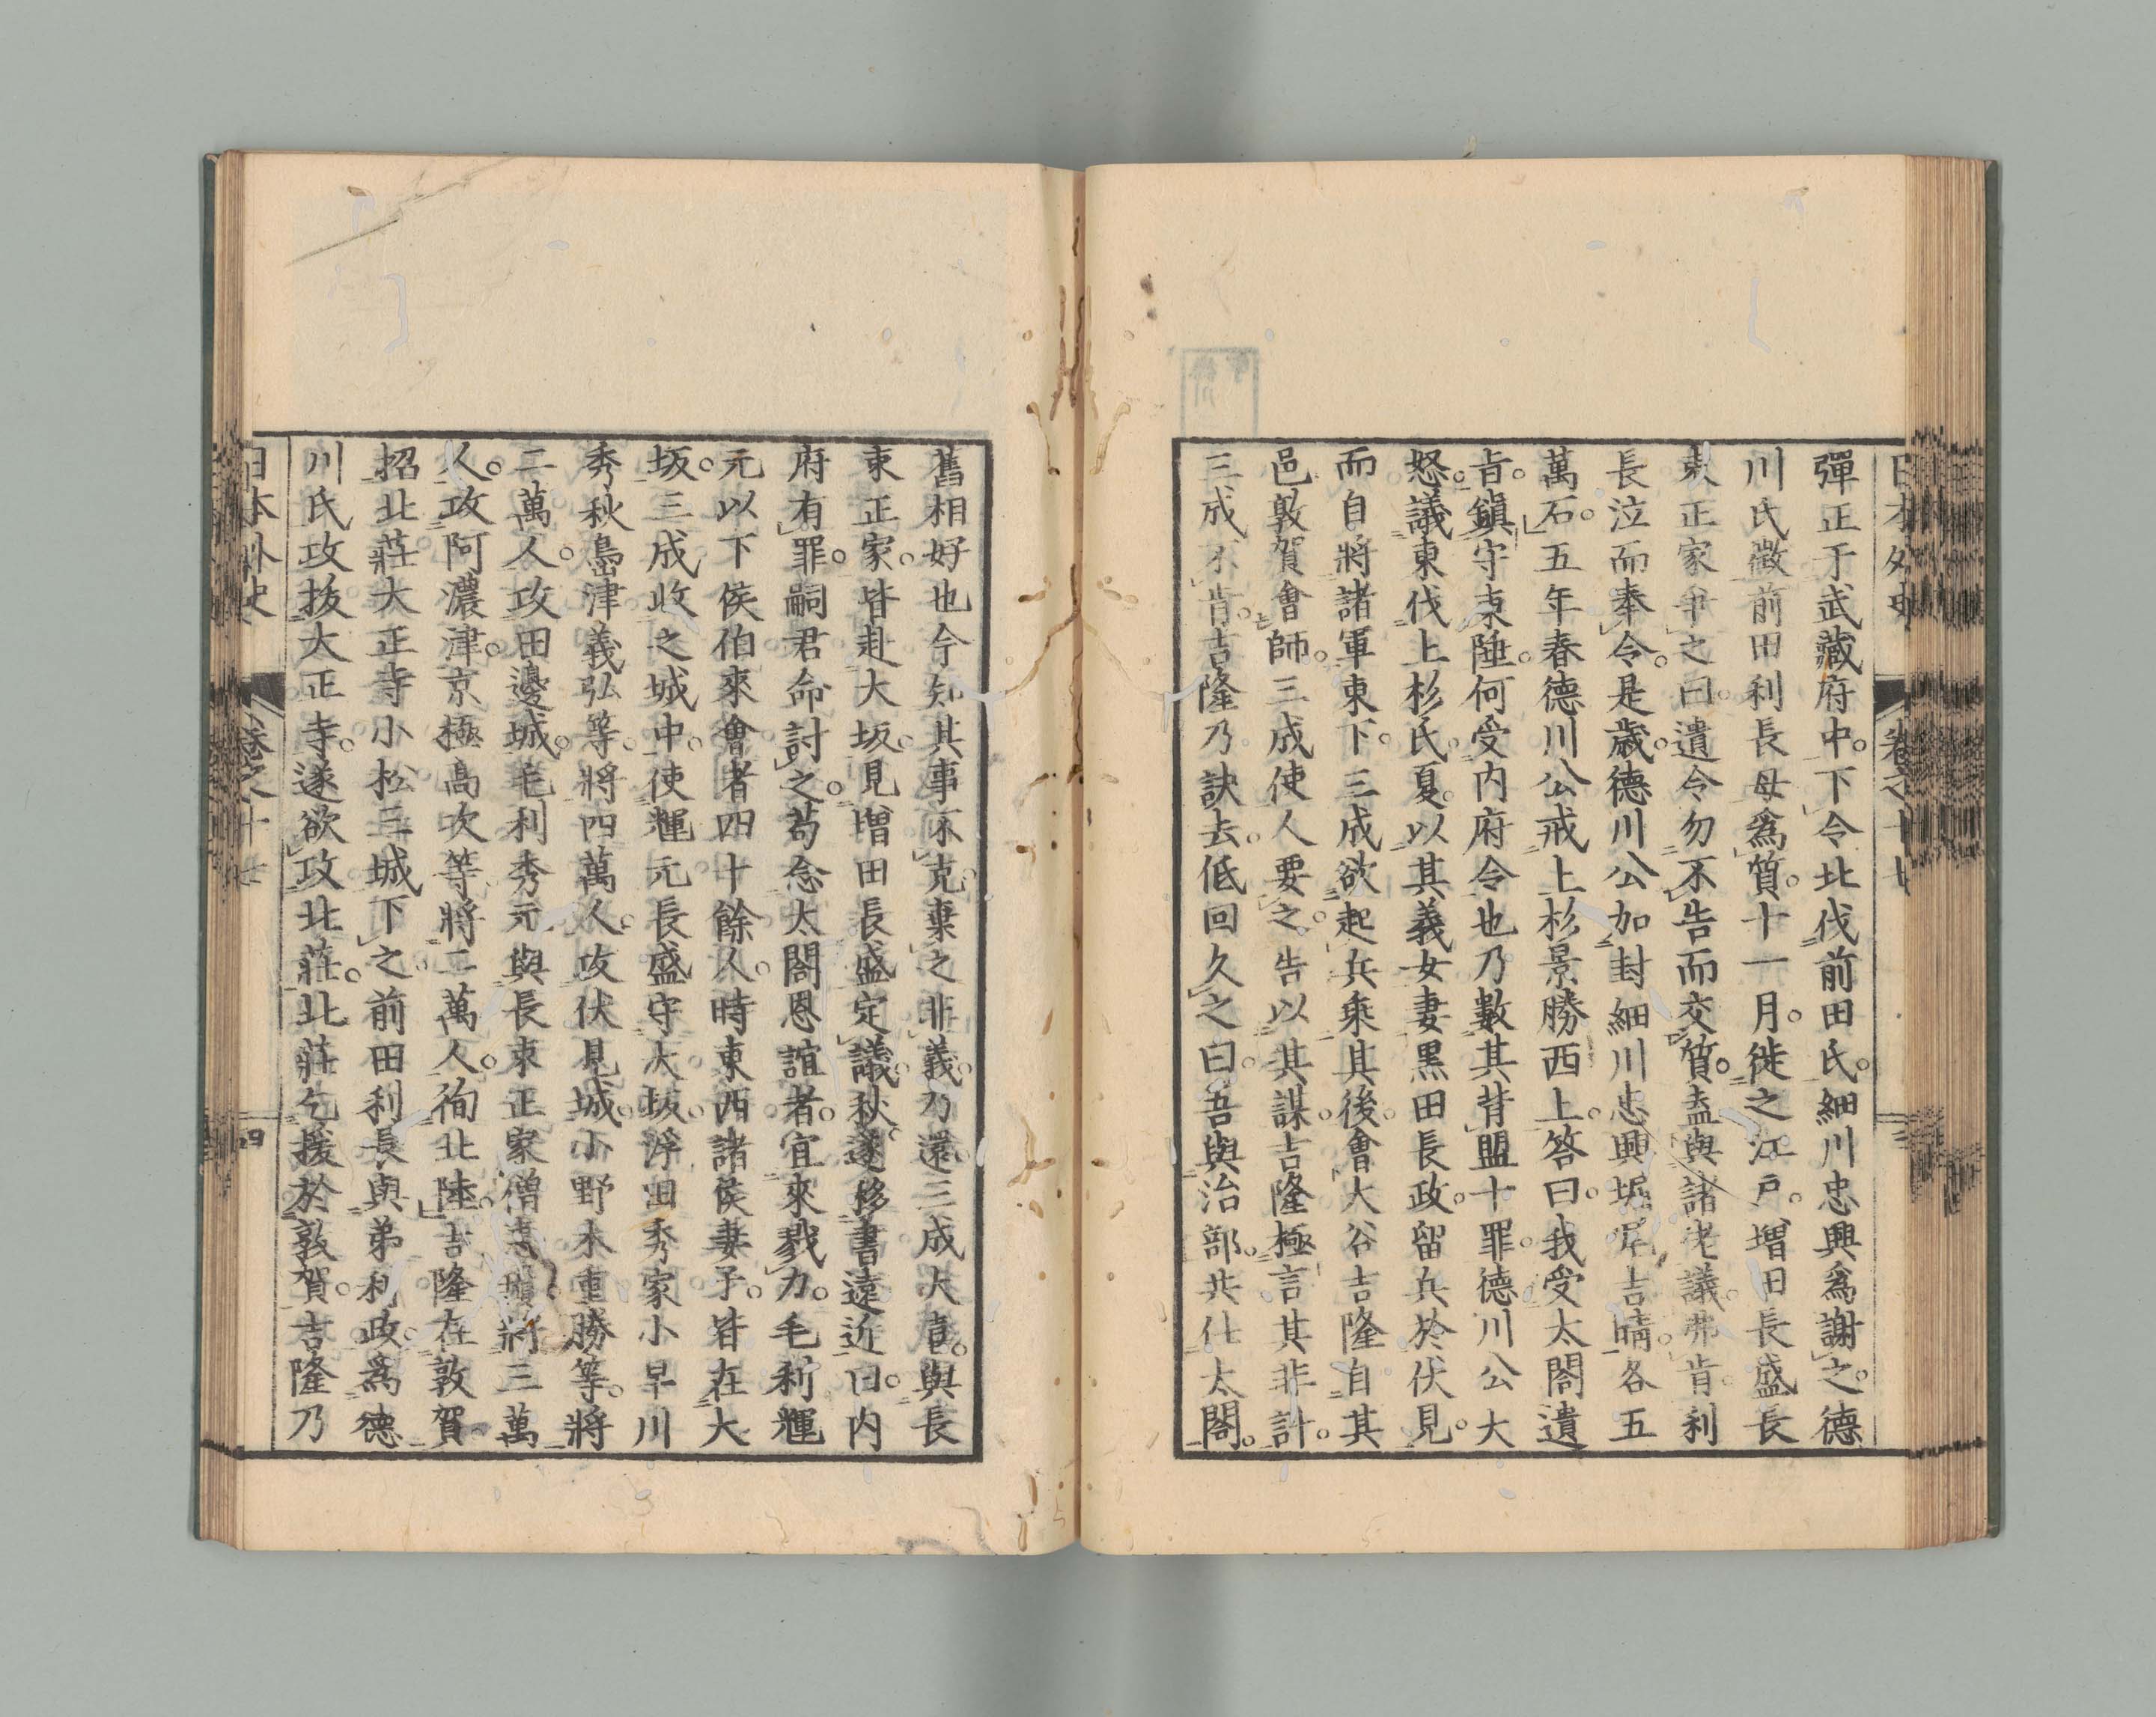 彈正于武藏府中。下令北伐前田氏。細川忠興爲謝之。德
川氏徵前田利長母爲質。十一月。徙之江戶。增田長盛長
束正家爭之曰。遺令勿不告而交質。盍與諸老議。弗肯。利
長泣而奉令。是歲。德川公加封細川忠興堀尾吉晴。各五
萬石。五年春德川公戒上杉景勝西上。答曰。我受太閤遺
旨。鎭守東陲。何受内府令也乃數其背盟十罪。德川公大
怒。議東伐上杉氏。夏。以其義女妻黑田長政。留兵於伏見。
而自將諸軍東下。三成欲起兵乘其後。會大谷吉隆自其
邑敦賀會師。三成使人要之。告以其謀。吉隆極言其非計。
三成不肯。吉隆乃訣去。低回久之曰。吾與治部。共仕太閤。
舊相好也今知其事不克。棄之非義。乃還三成大喜。與長
束正家。皆赴大坂。見增田長盛定議。秋。遂移書遠近。曰。内
府有罪。嗣君命討之。苟念太閤恩誼者。宜來戮力。毛利輝
元以下侯伯來會者四十餘人。時東西諸侯妻子。皆在大
坂。三成收之城中。使輝元長盛守大坂。浮田秀家小早川
秀秋島津義弘等。將四萬人。攻伏見城。小野木重勝等。將
二萬人。攻田邊城。毛利秀元與長束正家僧惠瓊將三萬
人。攻阿濃津。京極高次等將二萬人。徇北陸。吉隆在敦賀。
招北莊大正寺小松三城下之。前田利長與弟利政。爲德
川氏攻拔大正寺。遂欲攻北莊。北莊乞援於敦賀。吉隆乃
日本外史
卷之十七
四